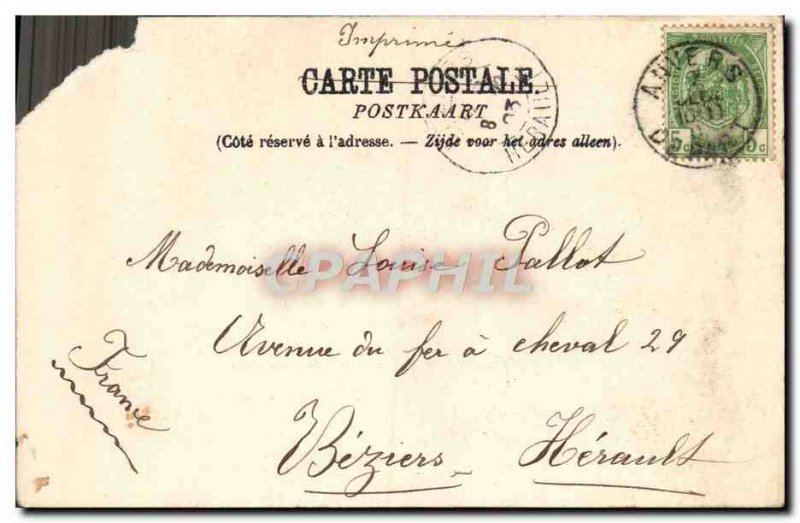 Imprimé
CARTE POSTALE
POSTKAART
(Côté réservé à l'adresse. — Zijde voor het adres alleen).
ANVERS
5c 5c
8
03
Mademoiselle Louise Pallot
Avenue du fer à cheval 29
Béziers - Hérault
France
CPAPHIL